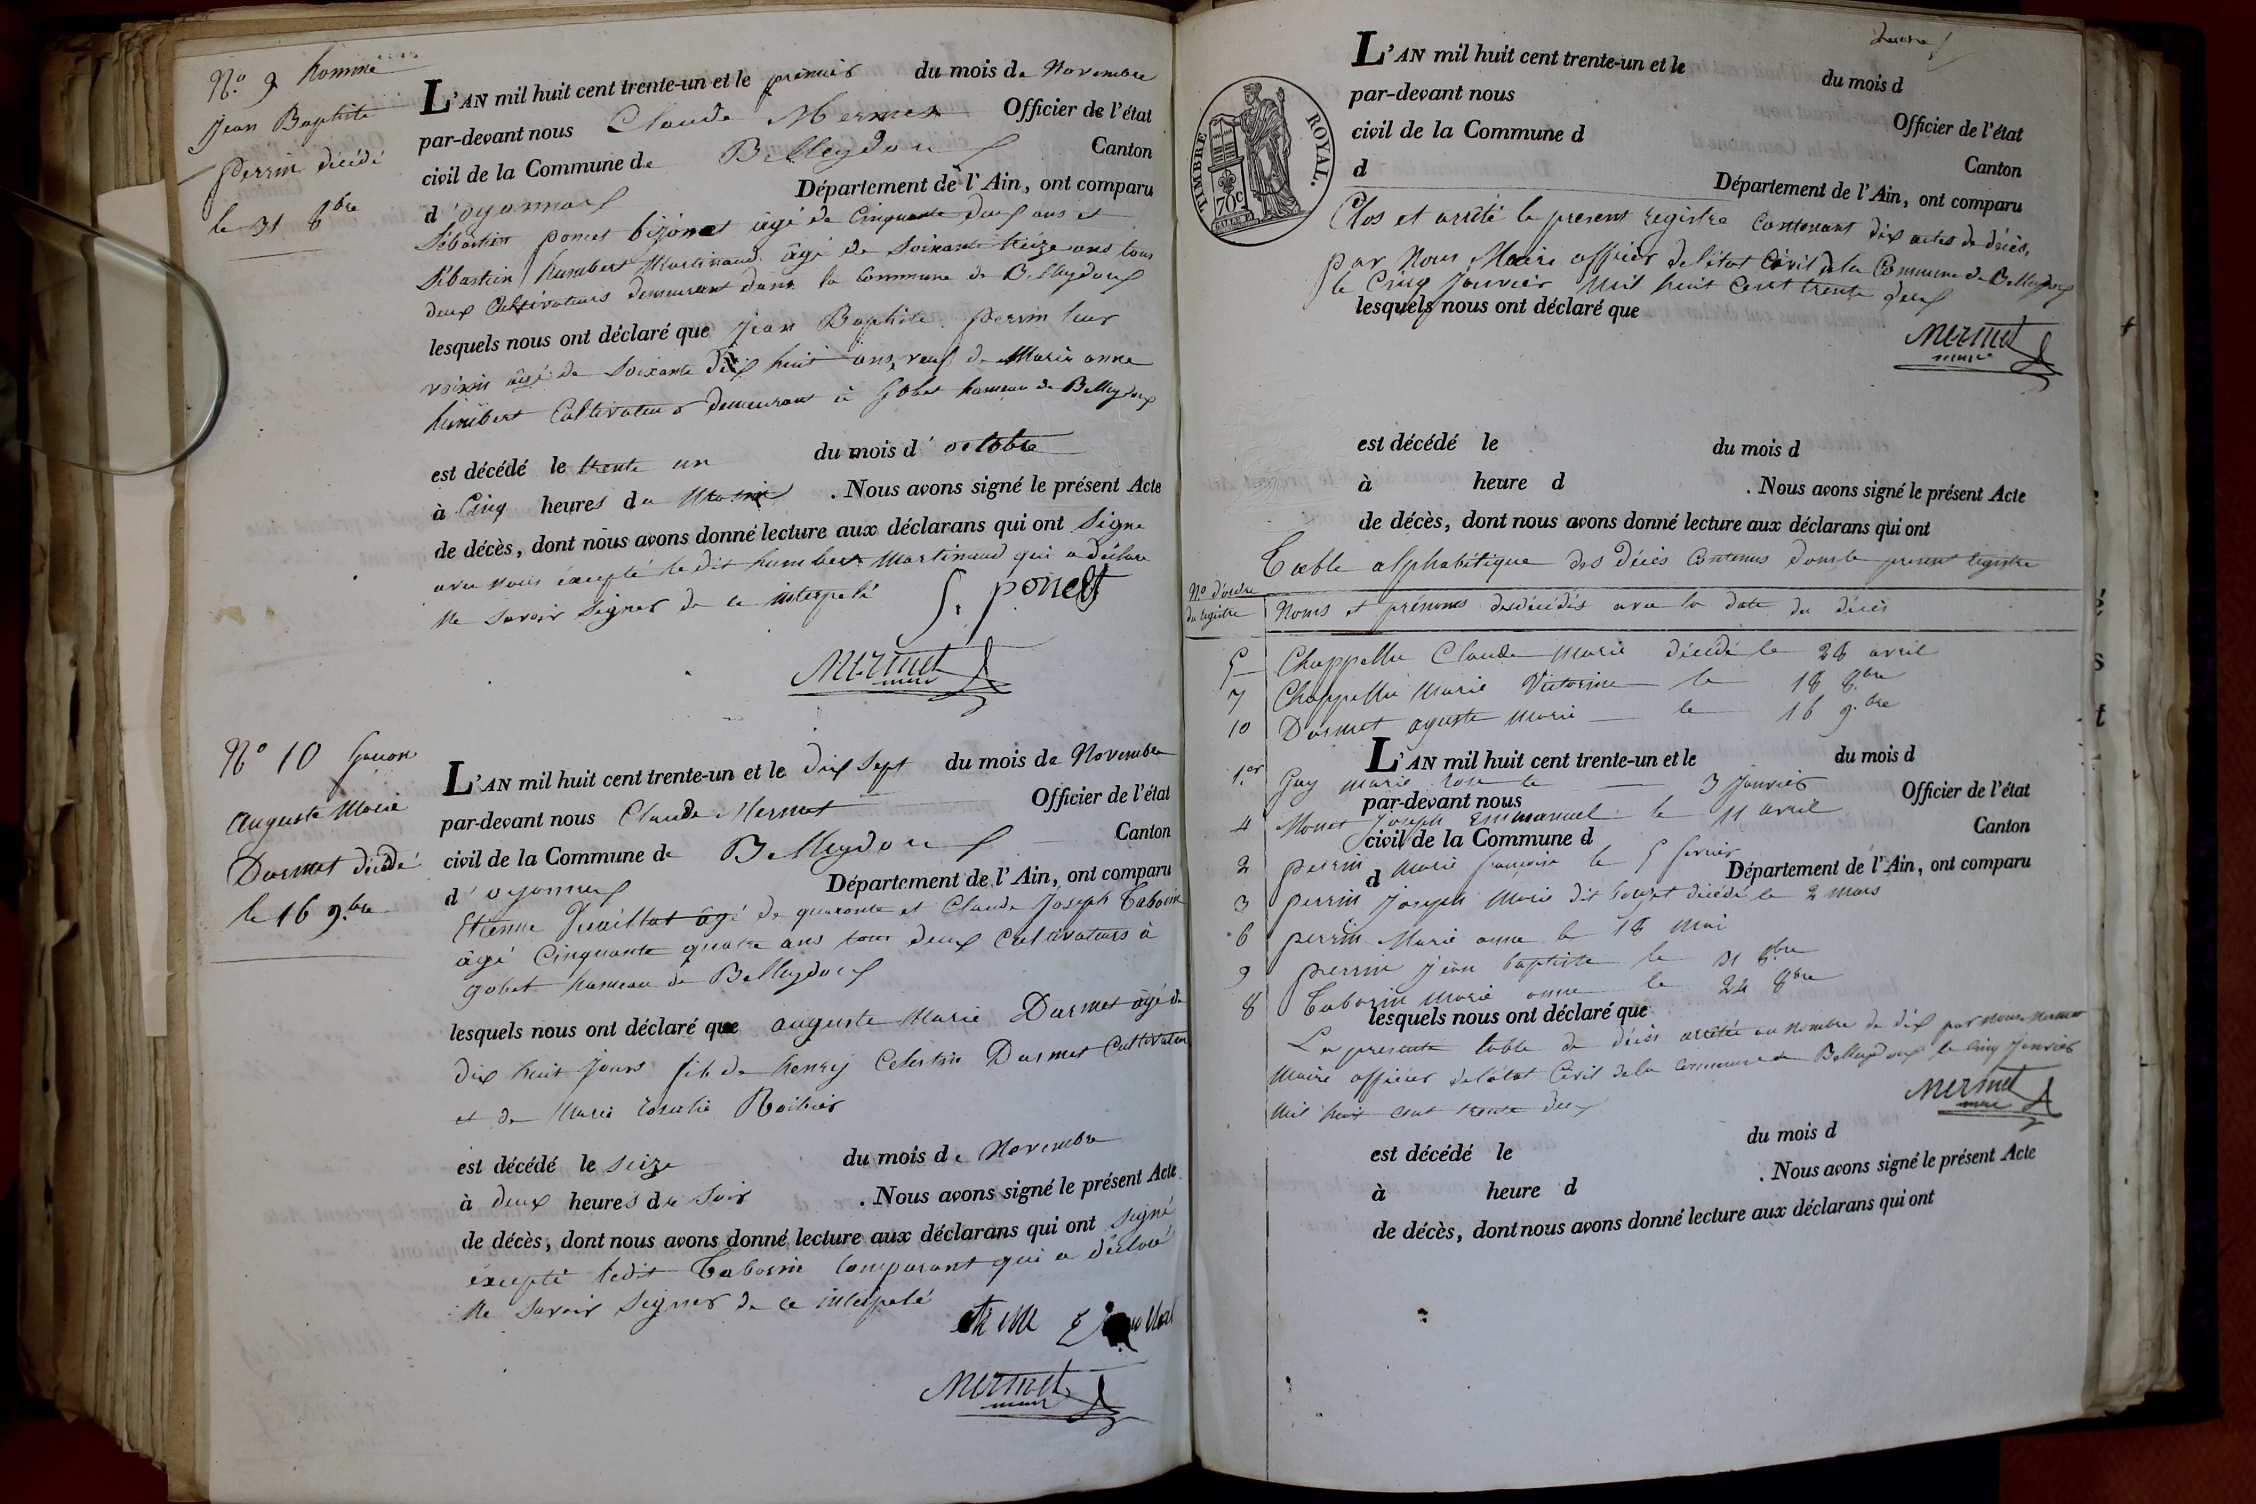 N.o 9 homme
Jean Baptiste
Perrin décédé
le 31 8bre
L'AN mil huit cent trente-un et le premier du mois de Novembre
par-devant nous Claude Mermet Officier de l'état
civil de la Commune de Belleydoux Canton
d'oyonnax Département de l'Ain, ont comparu
Sébastien poncet bizonet âgé de Cinquante deux ans et
Sébastien humbert Martinaud âgé de Soixante treize ans tous
deux Cultivateurs demeurant dans la Commune de Belleydoux
lesquels nous ont déclaré que Jean Baptiste perrin leur
voisin âgé de Soixante dix huit ans, veuf de Marie anne
humbert Cultivateur demeurant à Gobet hameau de Belleydoux
est décédé le trente un du mois d'octobre
à Cinq heures du Matin . Nous avons signé le présent Acte
de décès, dont nous avons donné lecture aux déclarans qui ont Signé
avec nous éxcepté le dit humbert Martinaud qui a déclaré
Ne Savoir Signer de ce interpelé
S. poncet
Mermet
maire
N.o 10 Garçon
Auguste Marie
Darmet décédé
le 16 9.bre
L'AN mil huit cent trente-un et le dix Sept du mois de Novembre
par-devant nous Claude Mermet Officier de l'état
civil de la Commune de Belleydoux Canton
d'oyonnax Département de l'Ain, ont comparu
Etienne Vuaillat âgé de quarante et Claude Joseph Taborin
âgé Cinquante quatre ans tous deux Cultivateurs à
gobet hameau de Belleydoux
lesquels nous ont déclaré que auguste Marie Darmet âgé de
dix huit jours fils de henry Celestin Darmet Cultivateur
et de Marie rosalie
est décédé le Seize du mois de Novembre
à deux heures du Soir . Nous avons signé le présent Acte
de décès, dont nous avons donné lecture aux déclarans qui ont Signé
éxcepté ledit Taborin Comparant qui a déclaré
Ne Savoir Signer de ce interpelé
Mermet
maire
TIMBRE ROYAL.
70 c
L'AN mil huit cent trente-un et le du mois d
par-devant nous Officier de l'état
civil de la Commune d Canton
d Département de l'Ain, ont comparu
Clos et arrêté le présent registre Contenant dix actes de décès,
par Nous Maire officier de l'état Civil de la Commune de Belleydoux
le Cinq Janvier Mil huit Cent trente deux
lesquels nous ont déclaré que
Mermet
maire
est décédé le du mois d
à heure d . Nous avons signé le présent Acte
de décès, dont nous avons donné lecture aux déclarans qui ont
Table alphabétique des décès Contenus dans le présent registre
No d'ordre
du registre
Noms et prénoms des décédés avec la date du décès
5 Chappellu Claude Marie décédé le 28 avril
7 Chappellu Marie Victorine le 18 8.bre
10 Darmet aguste Marie le 16 9.bre
L'AN mil huit cent trente-un et le du mois d
1.er Gay Marie rose le 3 Janvier
par-devant nous Officier de l'état
4 Monet Joseph Emmanuel le 11 avril
civil de la Commune d Canton
2 perrin Marie françoise le 5 fevrier
d Département de l'Ain, ont comparu
3 perrin Joseph Marie dit décédé le 2 mars
6 perrin Marie anne le 18 Mai
9 perrin Jean baptiste le 31 8bre
8 Taborin Marie anne le 24 8bre
lesquels nous ont déclaré que
La présente table de décès arrêtée au Nombre de dix par nous Mermet
Maire officier de l'état Civil de la Commune de Belleydoux le Cinq Janvier
Mil huit cent trente deux
Mermet
maire
est décédé le du mois d
à heure d . Nous avons signé le présent Acte
de décès, dont nous avons donné lecture aux déclarans qui ont